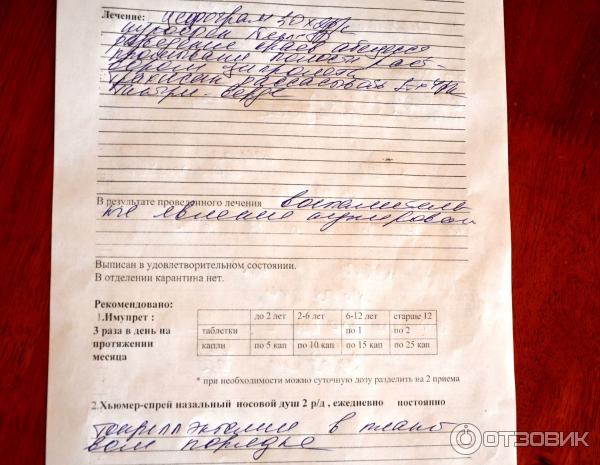 Лечение: цефограм
разведение краев абсцесса
промывание полости раст-
рассасывать
В результате проведенного лечения воспалитель-
ные явления купирован
Выписан в удовлетворительном состоянии.
В отделении карантина нет.
Рекомендовано:
1.Имупрет :
3 раза в день на
протяжении
месяца
до 2 лет 2-6 лет 6-12 лет старше 12
таблетки по 1 по 2
капли по 5 кап по 10 кап по 15 кап по 25 кап
* при необходимости можно суточную дозу разделить на 2 приема
2.Хьюмер-спрей назальный носовой душ 2 р/д , ежедневно постоянно
тонзиллэктомия в плано-
вом порядке
ОТЗОВИК